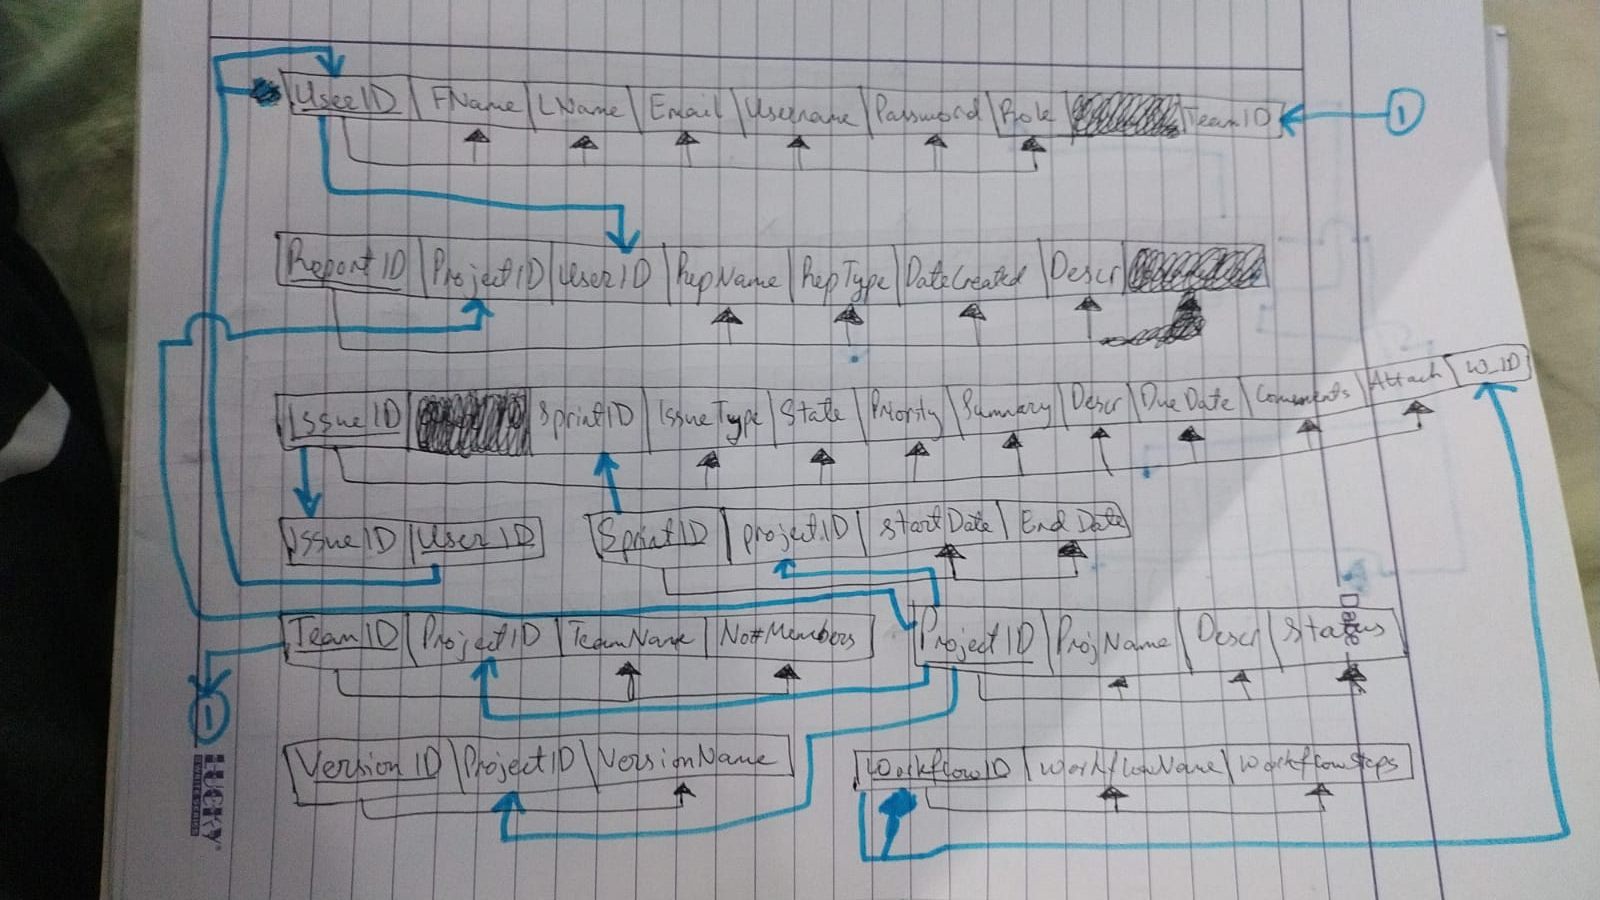 UserID FName LName Email Username Password Role TeamID 1
ReportID ProjectID UserID RepName RepType DateCreated Descr
IssueID SprintID IssueType State Priority Summary Descr DueDate Comments Attach W_ID
IssueID UserID SprintID projectID StartDate End Date
TeamID ProjectID TeamName No#Members ProjectID ProjName Descr Status
Date
1
VersionID ProjectID VersionName WorkflowID WorkflowName WorkflowSteps
LUCKY